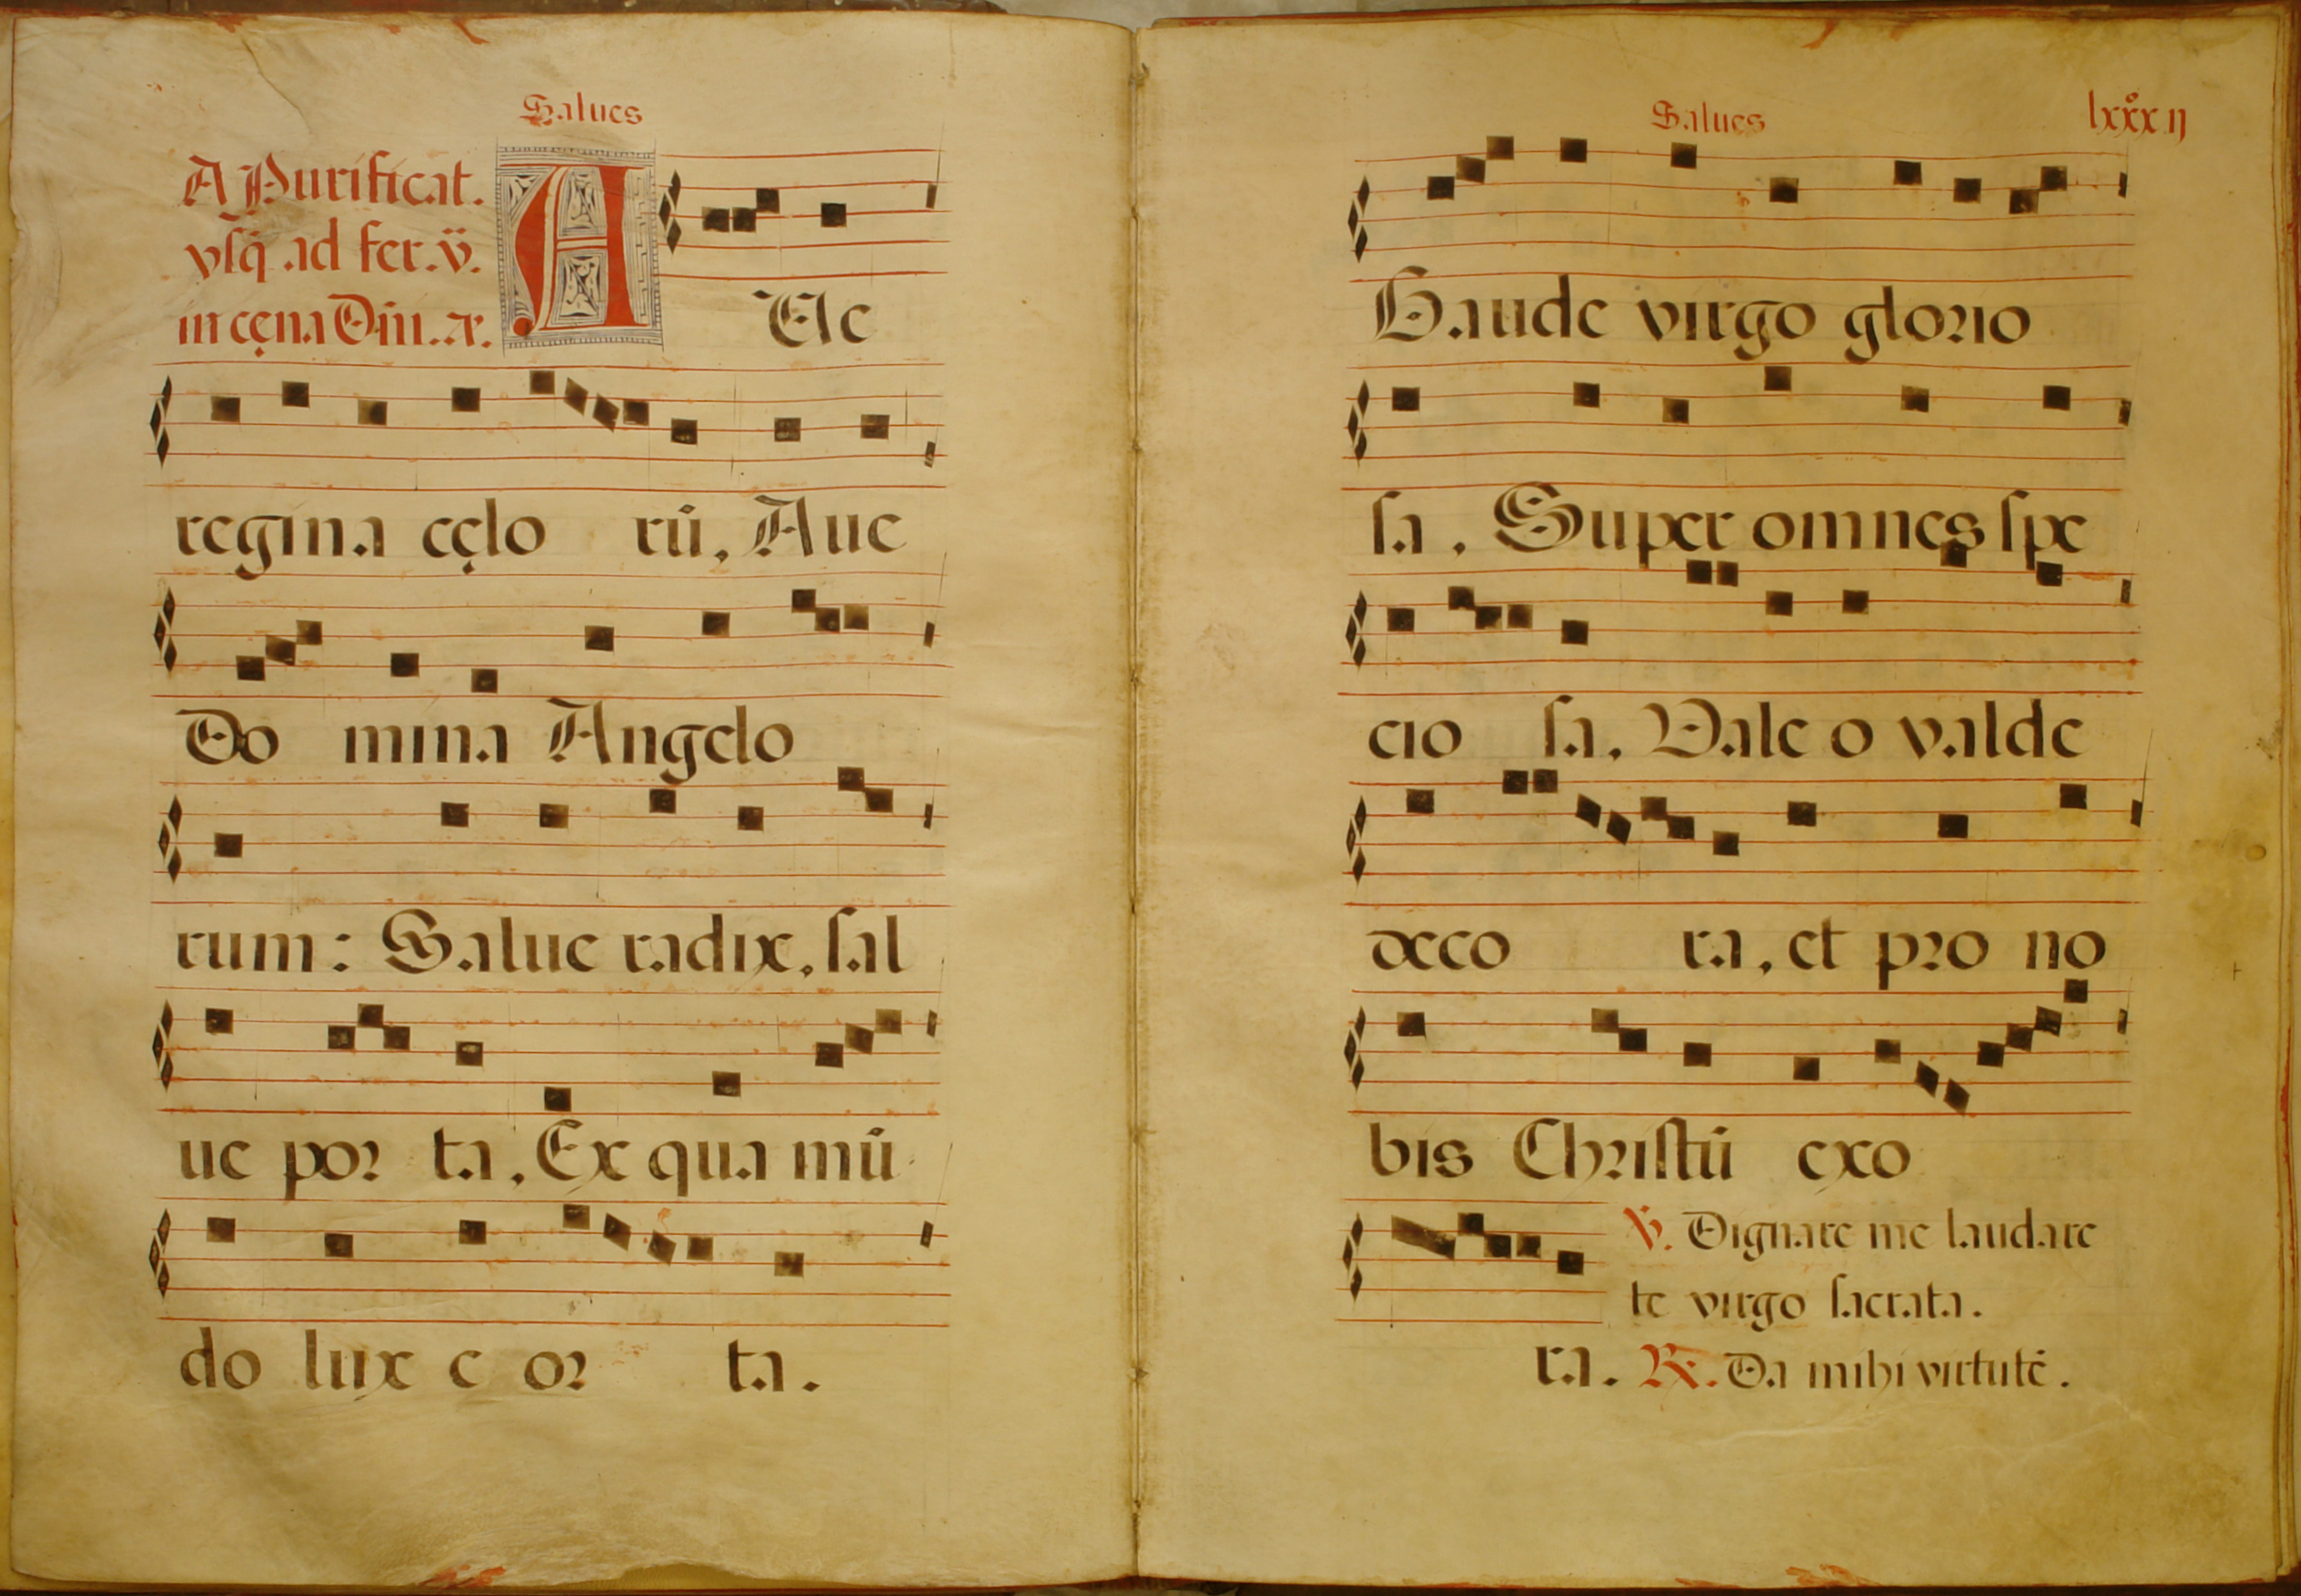 Salues
A Purificat.
vsq̃ ad fer. v̈.
in cęna Dñi. &.
A Ve
regina cęlo rũ, Aue
Do mina Angelo
rum: Salue radix, sal
ue por ta, Ex qua mũ
do lux e or ta.
Salues
lxxxij
Gaude virgo glorio
sa, Super omnes spe
cio sa, Vale o valde
deco ra, et pro no
bis Christũ exo
℣. Dignare me laudare
te virgo sacrata.
ra. ℟. Da mihi virtutẽ.